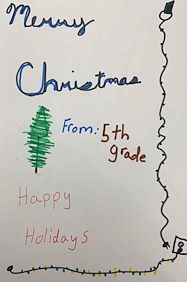 Merry
Christmas
From: 5th
grade
Happy
Holidays